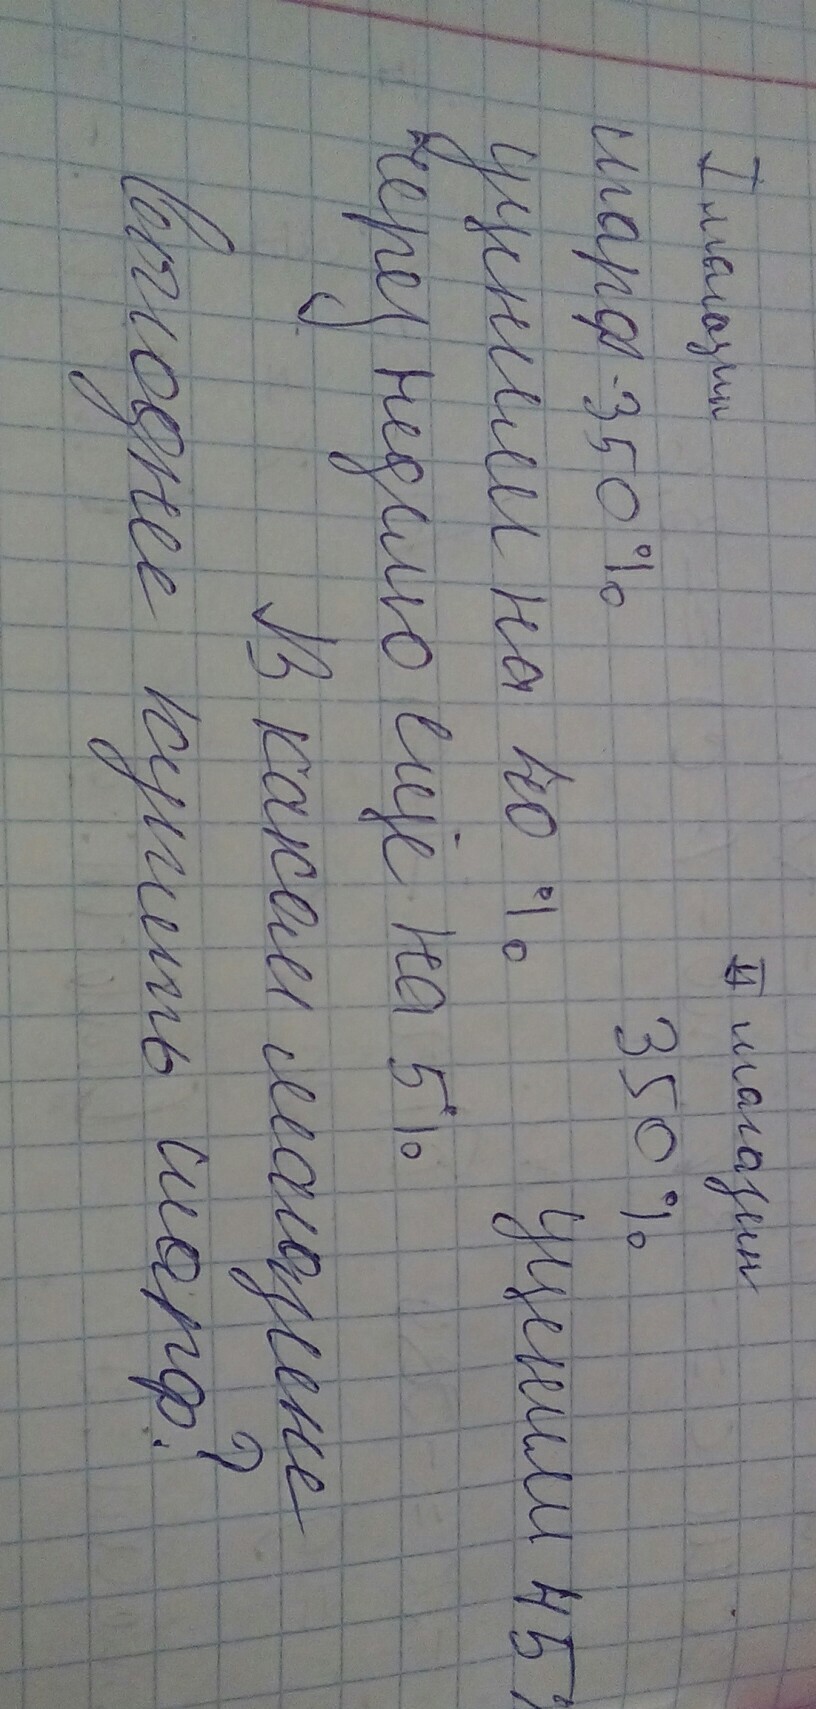 I магазин II магазин
шарф-350% 350%
уценили на 40% уценили 45%
Через неделю ещё на 5%
В каком магазине
выгоднее купить шарф?